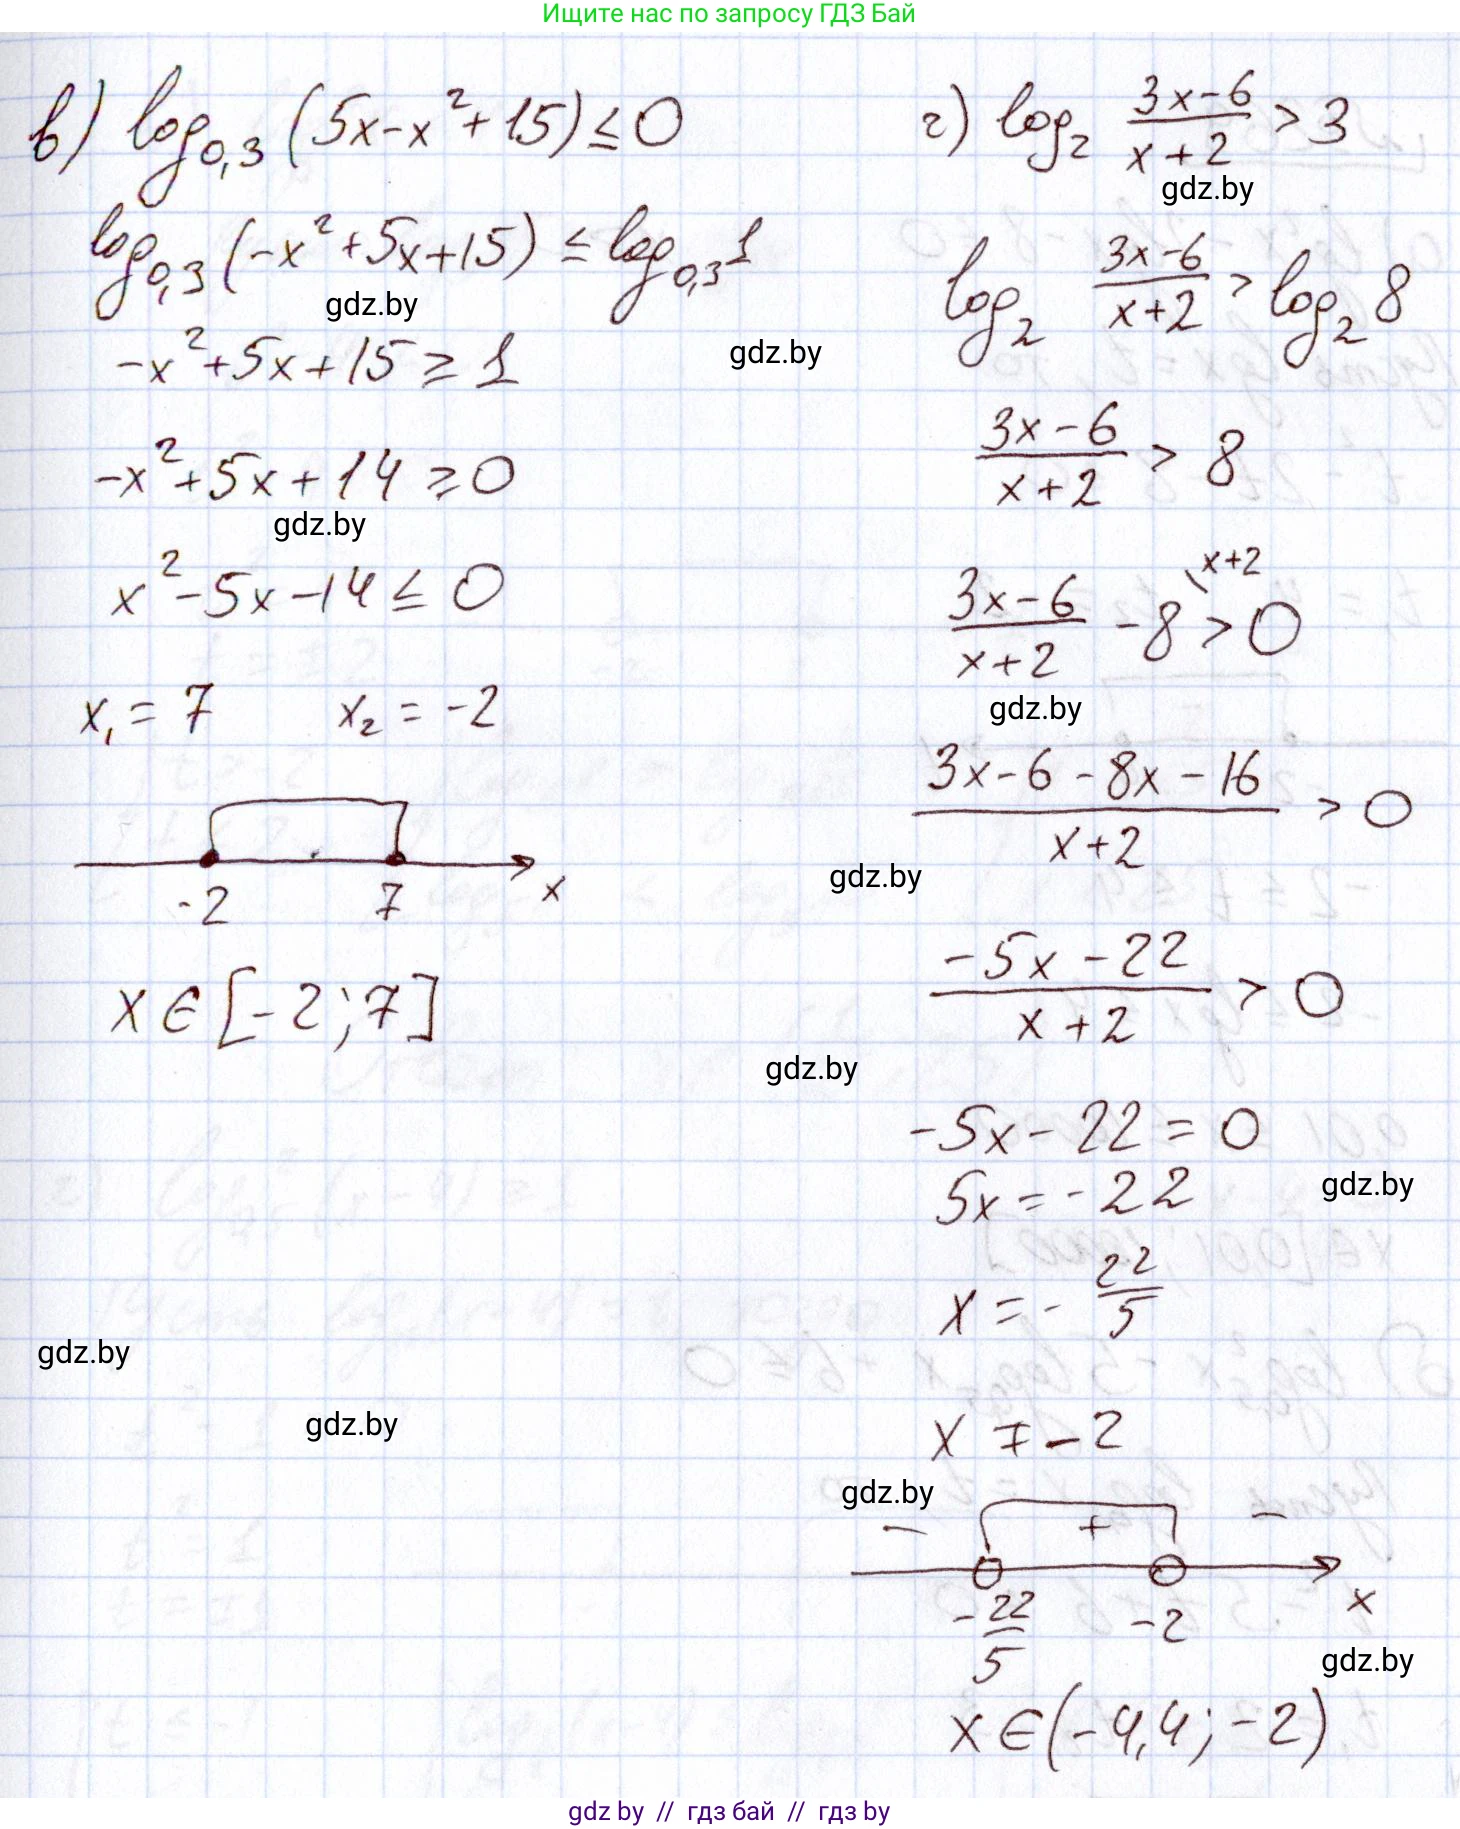 Ищите нас по запросу ГДЗ Бай
в) log₀,₃ (5x-x²+15) ≤ 0
log₀,₃ (-x²+5x+15) ≤ log₀,₃ 1
gdz.by
-x²+5x+15 ≥ 1
gdz.by
-x²+5x+14 ≥ 0
gdz.by
x²-5x-14 ≤ 0
x₁ = 7 x₂ = -2
-2 7 x
x ∈ [-2; 7]
gdz.by
gdz.by
г) log₂ (3x-6)/(x+2) > 3
gdz.by
log₂ (3x-6)/(x+2) > log₂ 8
(3x-6)/(x+2) > 8
(3x-6)/(x+2) - 8 \x+2 > 0
gdz.by
(3x-6-8x-16)/(x+2) > 0
gdz.by
(-5x-22)/(x+2) > 0
gdz.by
-5x-22 = 0
5x = -22
gdz.by
x = -22/5
x ≠ -2
gdz.by
- + -
-22/5 -2 x
gdz.by
x ∈ (-4,4; -2)
gdz by // гдз бай // гдз by